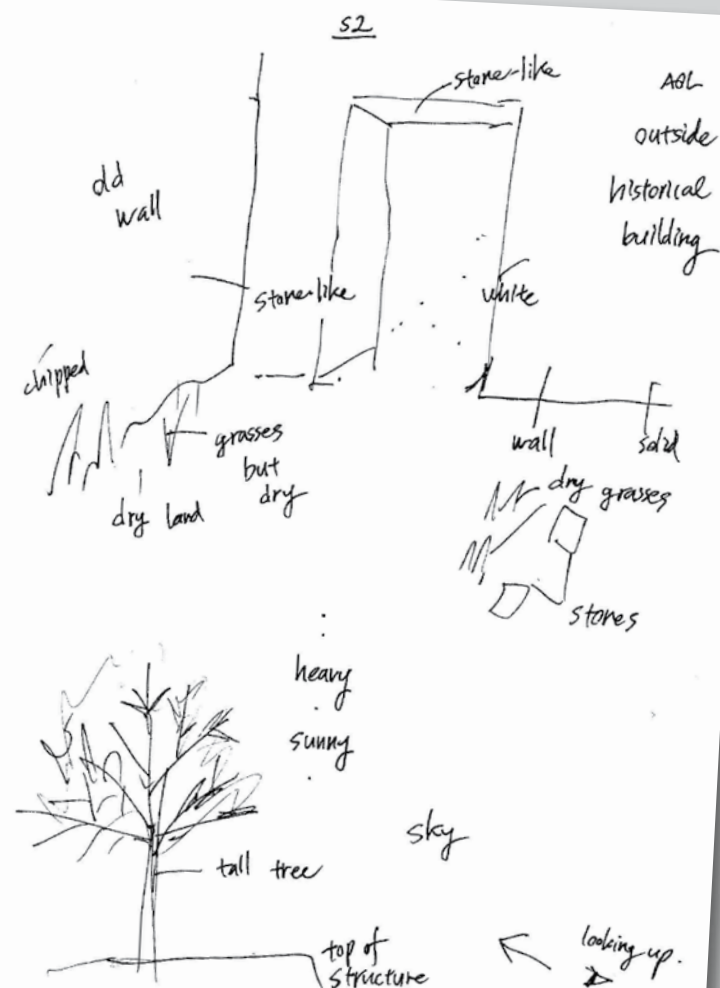 S2
stone-like
AOL
outside
historical
building
old
wall
stone-like
white
chipped
grasses
but
dry
dry land
wall
solid
dry grasses
stones
heavy
sunny
sky
tall tree
top of
structure
looking up.